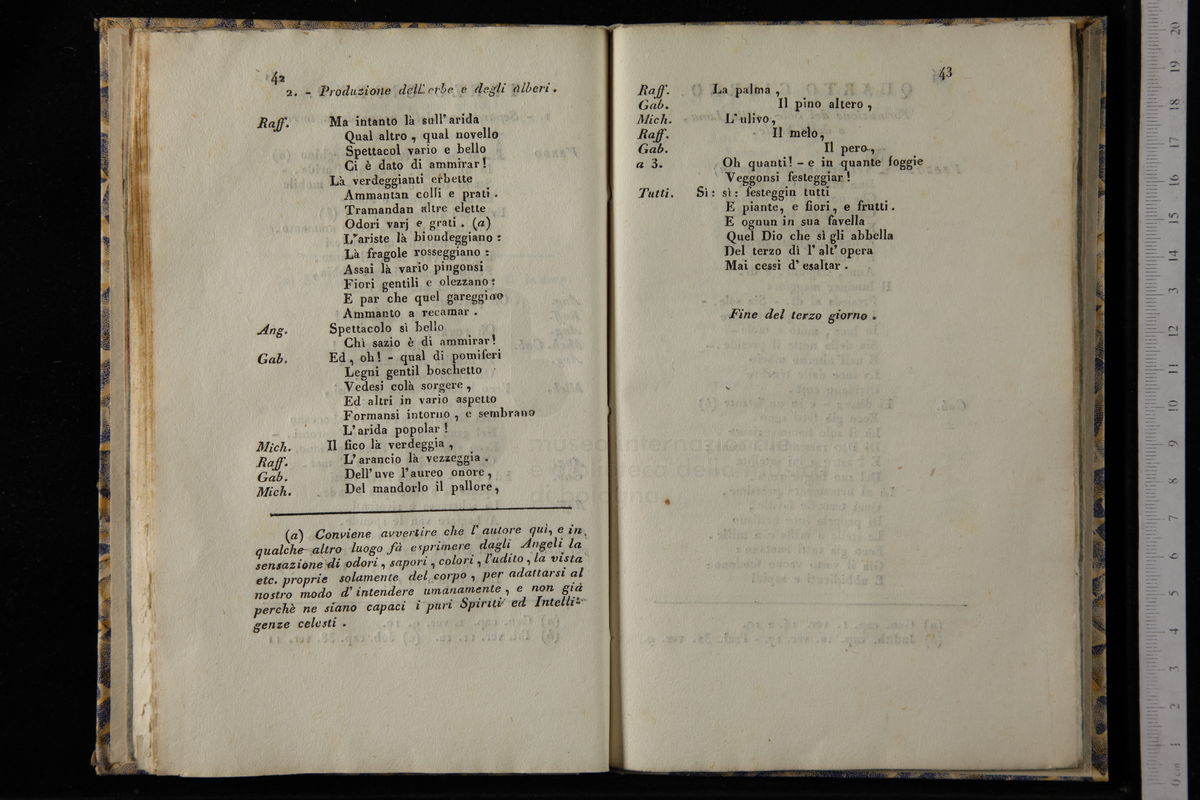 42
2. - Produzione dell' erbe e degli alberi.
Raff. Ma intanto là sull' arida
Qual altro, qual novello
Spettacol vario e bello
Ci è dato di ammirar!
Là verdeggianti erbette
Ammantan colli e prati.
Tramandan altre elette
Odori varj e grati. (a)
L'ariste là biondeggiano:
Là fragole rosseggiano:
Assai là vario pingonsi
Fiori gentili e olezzano:
E par che quel gareggino
Ammanto a recamar.
Ang. Spettacolo sì bello
Chi sazio è di ammirar!
Gab. Ed, oh! - qual di pomiferi
Legni gentil boschetto
Vedesi colà sorgere,
Ed altri in vario aspetto
Formansi intorno, e sembrano
L'arida popolar!
Mich. Il fico là verdeggia,
Raff. L'arancio là vezzeggia.
Gab. Dell'uve l'aureo onore,
Mich. Del mandorlo il pallore,
(a) Conviene avvertire che l' autore qui, e in
qualche altro luogo fà esprimere dagli Angeli la
sensazione di odori, sapori, colori, l'udito, la vista
etc. proprie solamente del corpo, per adattarsi al
nostro modo d' intendere umanamente, e non già
perchè ne siano capaci i puri Spiriti ed Intelli-
genze celesti.
43
Raff. La palma,
Gab. Il pino altero,
Mich. L'ulivo,
Raff. Il melo,
Gab. Il pero,
a 3. Oh quanti! - e in quante foggie
Veggonsi festeggiar!
Tutti. Sì: sì: festeggin tutti
E piante, e fiori, e frutti.
E ognun in sua favella
Quel Dio che sì gli abbella
Del terzo dì l' alt' opera
Mai cessi d' esaltar.
Fine del terzo giorno.
museo internazionale
e biblioteca della musica
di bologna